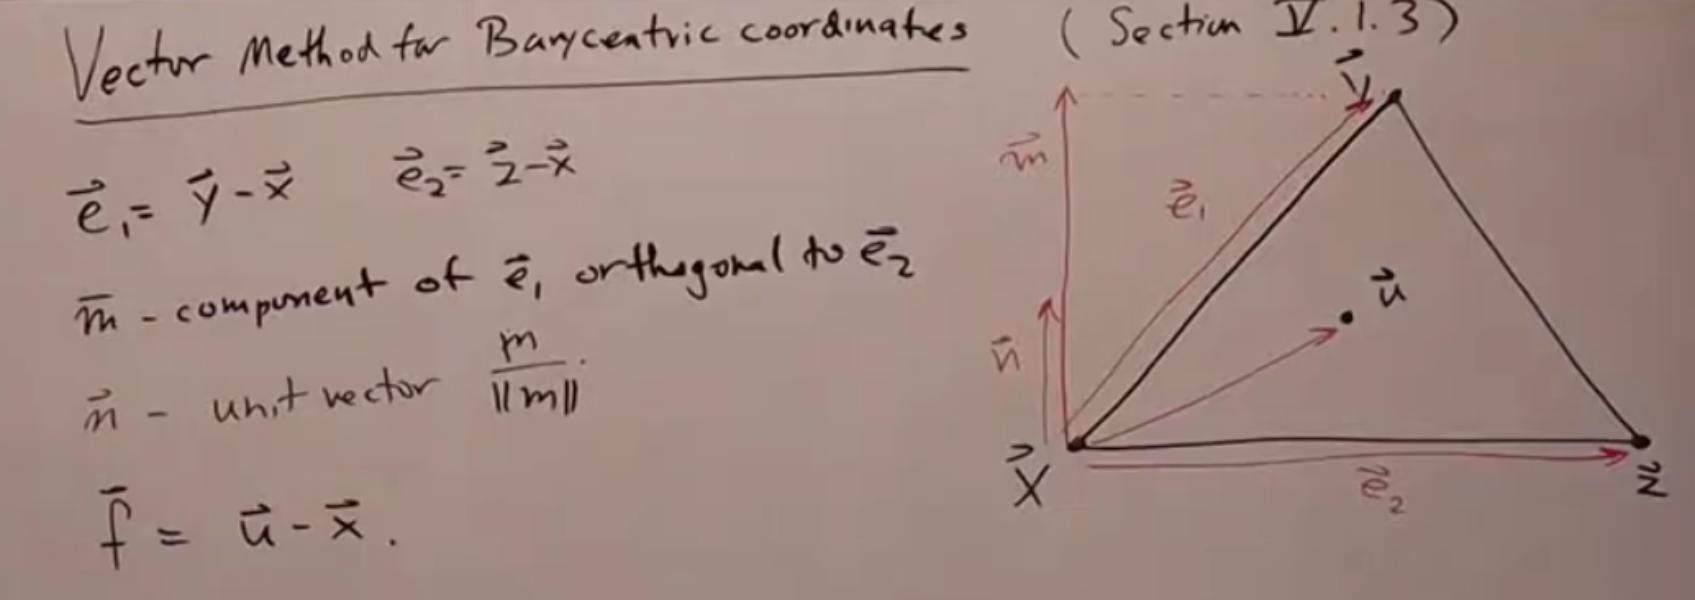 Vector Method for Barycentric coordinates (Section IV.1.3)
e⃗₁= y⃗ - x⃗ e⃗₂= z⃗ - x⃗
m̄ - component of ē₁ orthogonal to ē₂
n⃗ - unit vector m/||m||.
f̄ = u⃗ - x⃗.
y⃗
m⃗
e⃗₁
u⃗
n⃗
x⃗
e⃗₂
z⃗